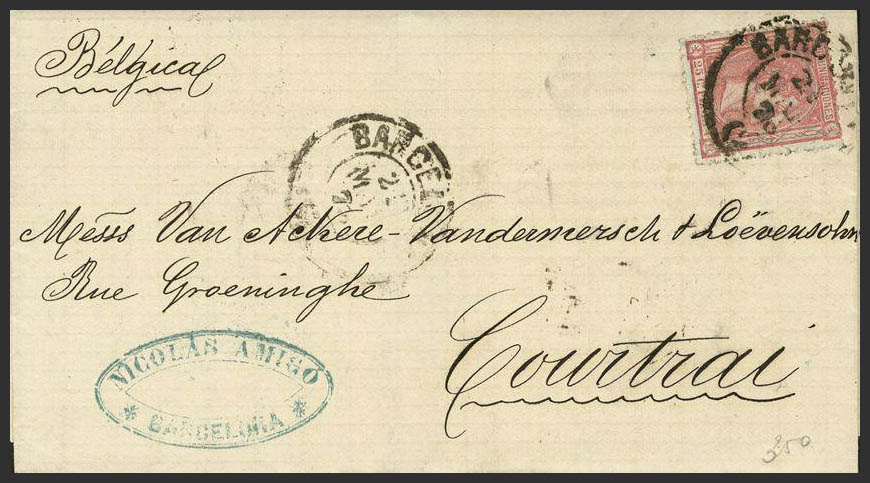 Bélgica
BARCE
25
Messs Van Ackere-Vandermersch & Loëvensohn
Rue Groeninghe
Courtrai
NICOLÁS AMIGÓ
BARCELONA
250